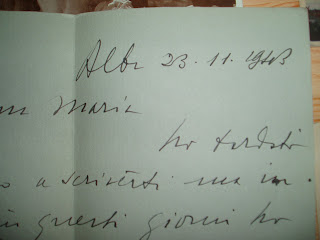 Alba 23.11.1943
Maria
ho tardato
a scriverti ma in
questi giorni ho